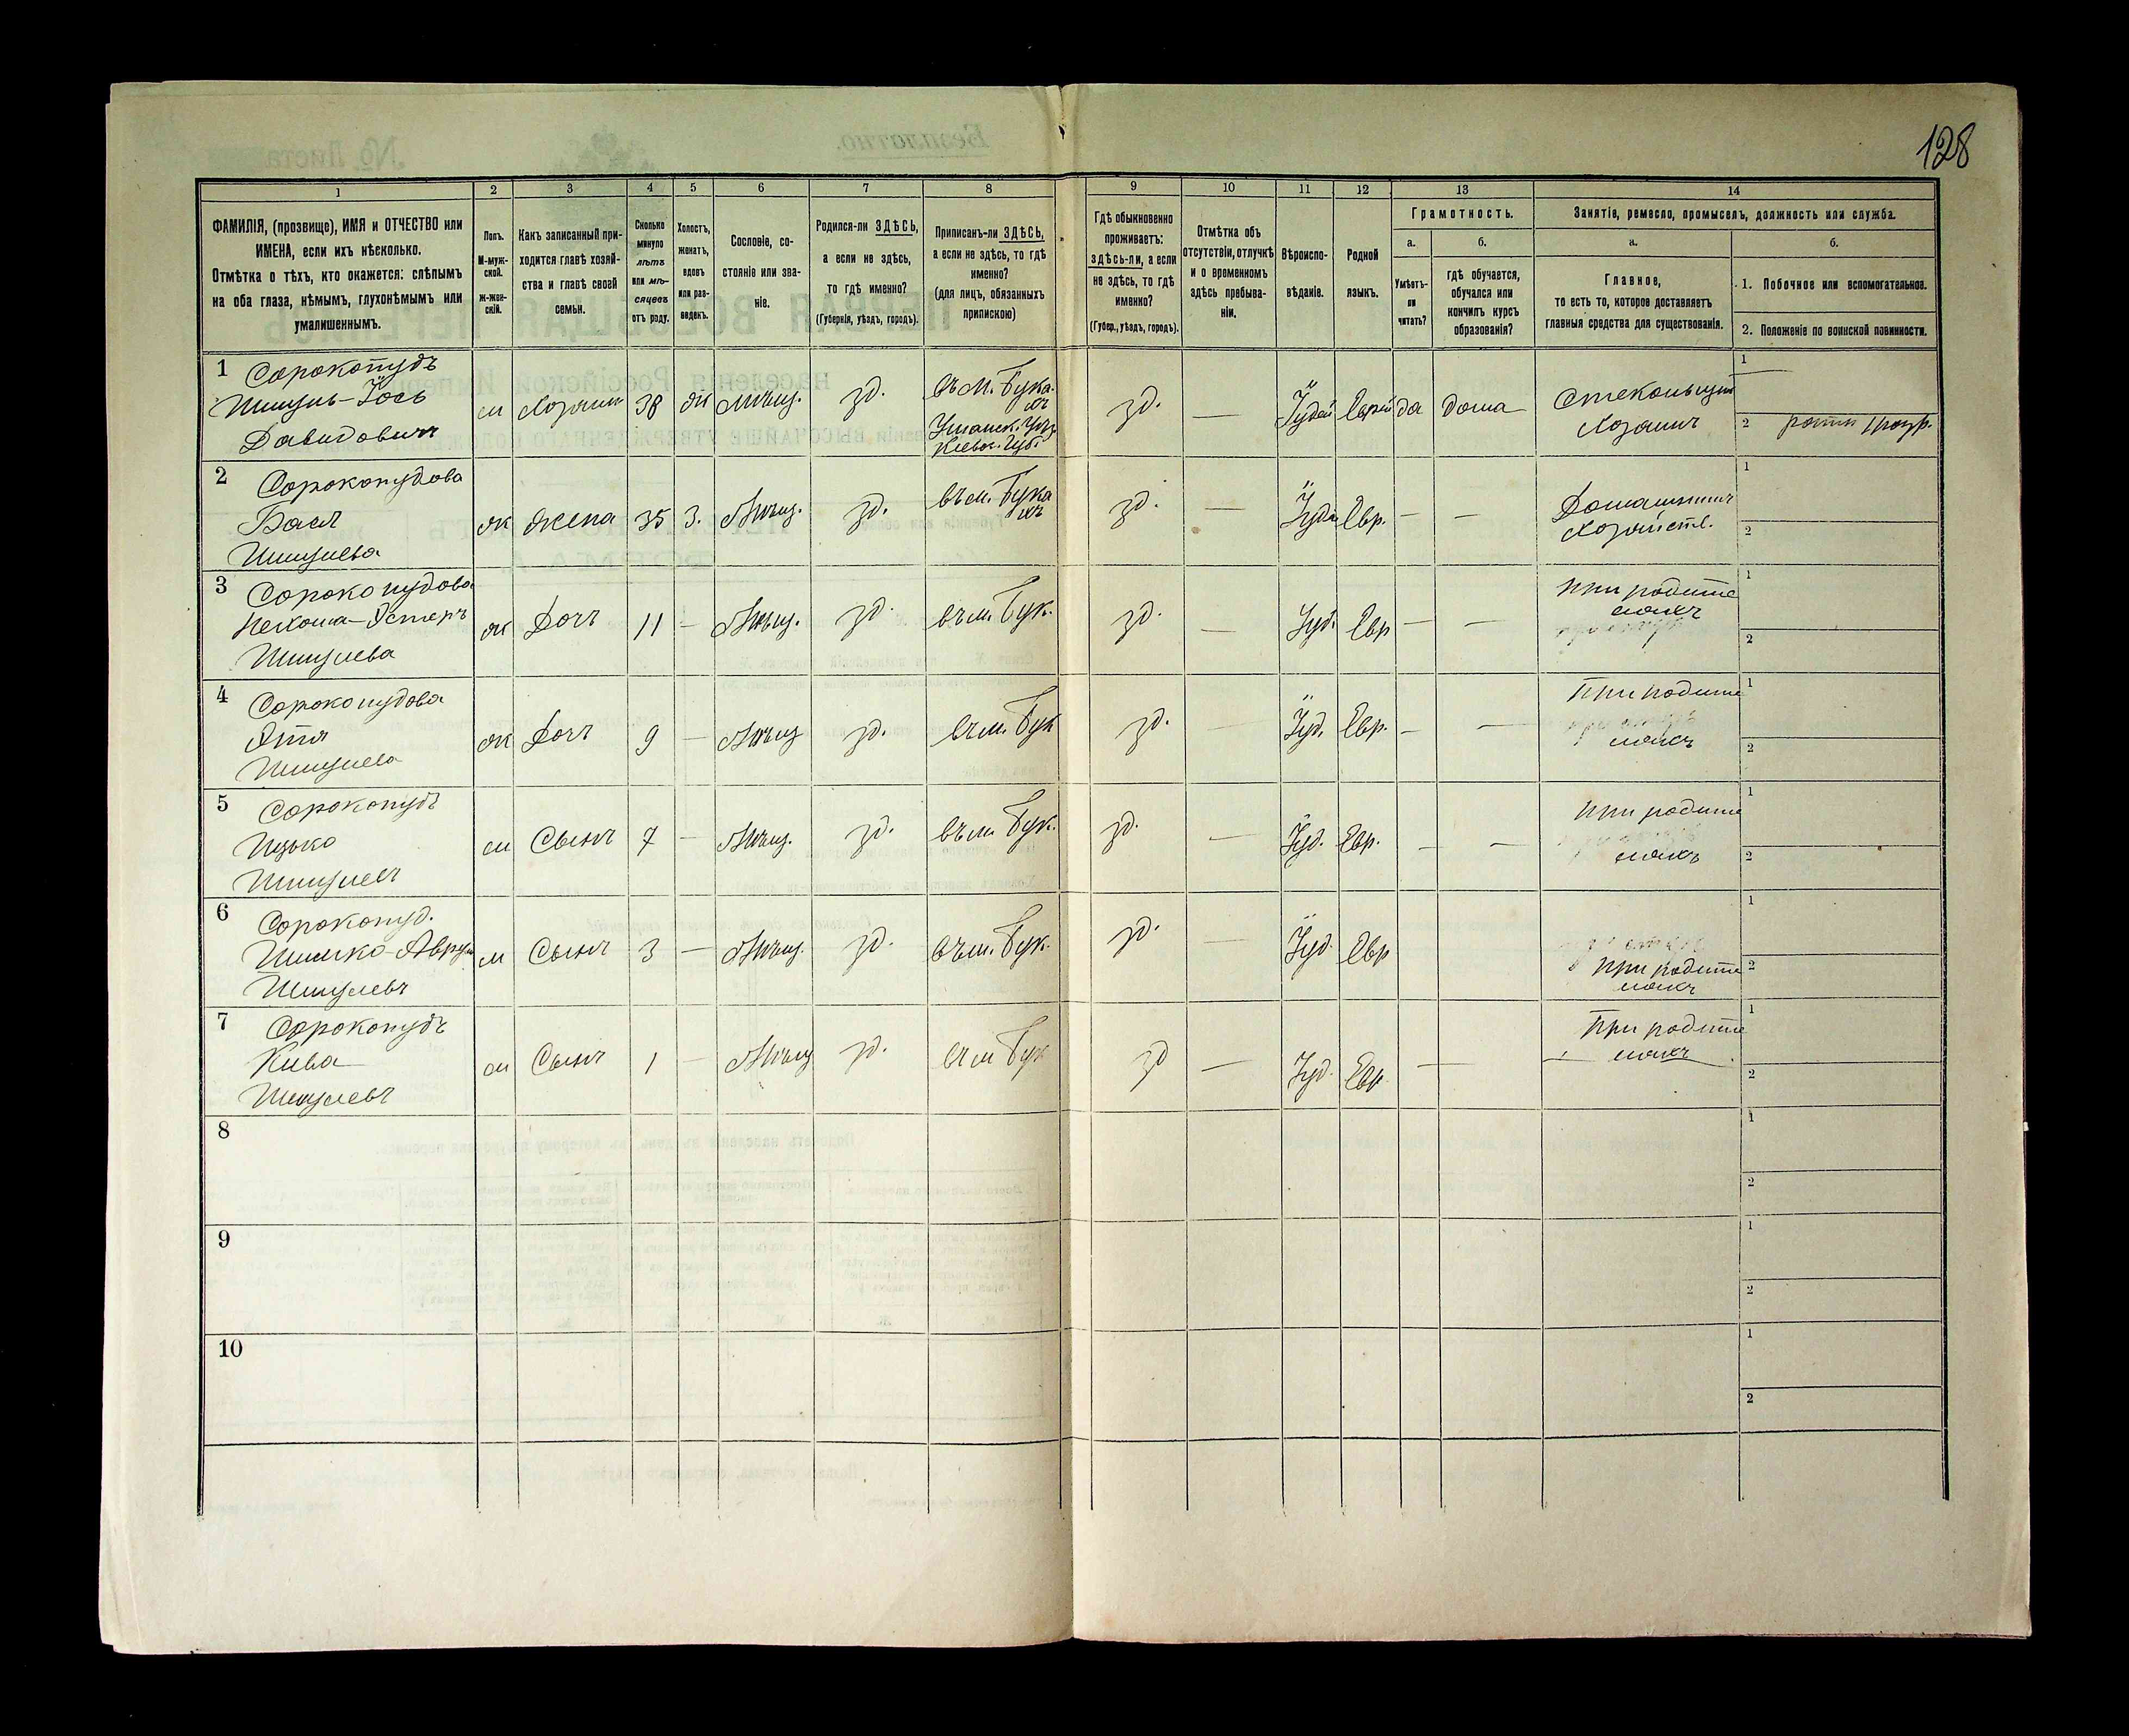 128
1 2 3 4 5 6 7 8 9 10 11 12 13 14
ФАМИЛІЯ, (прозвище), ИМЯ и ОТЧЕСТВО или
ИМЕНА, если ихъ нѣсколько.
Отмѣтка о тѣхъ, кто окажется: слѣпымъ
на оба глаза, нѣмымъ, глухонѣмымъ или
умалишеннымъ.
Полъ.
М-муж-
ской.
ж-жен-
скій.
Какъ записанный при-
ходится главѣ хозяй-
ства и главѣ своей
семьи.
Сколько
минуло
лѣтъ
или мѣ-
сяцевъ
отъ роду.
Холостъ,
женатъ,
вдовъ
или раз-
веденъ.
Сословіе, со-
стояніе или зва-
ніе.
Родился-ли ЗДѢСЬ,
а если не здѣсь,
то гдѣ именно?
(Губернія, уѣздъ, городъ).
Приписанъ-ли ЗДѢСЬ,
а если не здѣсь, то гдѣ
именно?
(для лицъ, обязанныхъ
припискою)
Гдѣ обыкновенно
проживаетъ:
здѣсь-ли, а если
не здѣсь, то гдѣ
именно?
(Губер., уѣздъ, городъ).
Отмѣтка объ
отсутствіи, отлучкѣ
и о временномъ
здѣсь пребыва-
ніи.
Вѣроиспо-
вѣданіе.
Родной
языкъ.
Грамотность.
а.
Умѣетъ-
ли
читать?
б.
гдѣ обучается,
обучался или
кончилъ курсъ
образованія?
Занятіе, ремесло, промыселъ, должность или служба.
а.
Главное,
то есть то, которое доставляетъ
главныя средства для существованія.
б.
1. Побочное или вспомогательное.
2. Положеніе по воинской повинности.
1 Сорокопудъ
Шмуль-Іось
Давидовичъ
м Хозяинъ 38 ж Мѣщ. зд.
въ м. Бука
хъ
Уманск. Уѣз
Кіевск. Губ.
зд. — Іудей Еврей да дома
Стекольщикъ
Хозяинъ
1
2 ратн 1 разр.
2 Сорокопудова
Бася
Шмулева
ж жена 35 З. Мѣщ. зд.
въ м. Бука
хъ
зд. — Іуде Евр. — —
Домашнимъ
Хозяйств.
1
2
3 Сорокопудова
Нехома-Эстеръ
Шмулева
ж Дочъ 11 — Мѣщ. зд. въ м. Бук. зд. — Іуд. Евр — —
при родите
ляхъ
1
2
4 Сорокопудова
Этя
Шмулева
ж Дочъ 9 — Мѣщ зд. въ м. Бук зд. — Іуд. Евр. — —
При родите
ляхъ
1
2
5 Сорокопудъ
Ицько
Шмулевъ
м Сынъ 7 — Мѣщ. зд. въ м. Бук. зд. — Іуд. Евр. — —
При родите
ляхъ
1
2
6 Сорокопуд.
Шимко-Аврум
Шмулевъ
м Сынъ 3 — Мѣщ. зд. въ м. Бук. зд. — Іуд. Евр
При родите
ляхъ
1
2
7 Сорокопудъ
Кива
Шмулевъ
м Сынъ 1 — Мѣщ зд. въ м Бук зд — Іуд. Евр. —
При родите
ляхъ
1
2
8
1
2
9
1
2
10
1
2